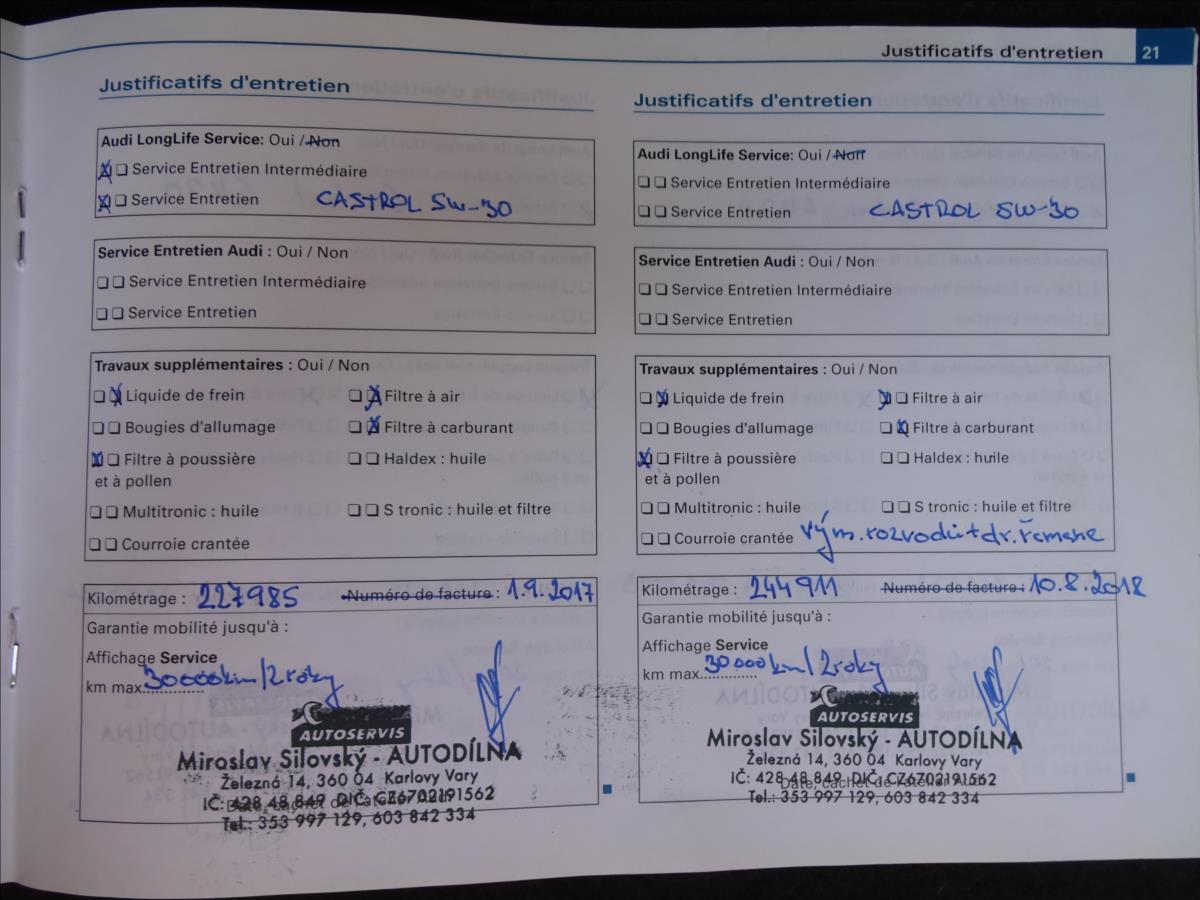 Justificatifs d'entretien 21
Justificatifs d'entretien
Audi LongLife Service: Oui / Non
Service Entretien Intermédiaire
Service Entretien CASTROL 5W-30
Service Entretien Audi : Oui / Non
Service Entretien Intermédiaire
Service Entretien
Travaux supplémentaires : Oui / Non
Liquide de frein Filtre à air
Bougies d'allumage Filtre à carburant
Filtre à poussière Haldex : huile
et à pollen
Multitronic : huile S tronic : huile et filtre
Courroie crantée
Kilométrage : 227985 Numéro de facture : 1.9.2017
Garantie mobilité jusqu'à :
Affichage Service
km max. 30000km/2roky
AUTOSERVIS
Miroslav Silovský - AUTODÍLNA
Železná 14, 360 04 Karlovy Vary
IČ: 428 48 849 DIČ: CZ6702191562
Date, cachet de l'atelier Audi
Tel.: 353 997 129, 603 842 334
Justificatifs d'entretien
Audi LongLife Service: Oui / Non
Service Entretien Intermédiaire
Service Entretien CASTROL 5W-30
Service Entretien Audi : Oui / Non
Service Entretien Intermédiaire
Service Entretien
Travaux supplémentaires : Oui / Non
Liquide de frein Filtre à air
Bougies d'allumage Filtre à carburant
Filtre à poussière Haldex : huile
et à pollen
Multitronic : huile S tronic : huile et filtre
Courroie crantée vým.rozvodů+dr.řemene
Kilométrage : 244911 Numéro de facture : 10.8.2018
Garantie mobilité jusqu'à :
Affichage Service
km max. 30000km/2roky
AUTOSERVIS
Miroslav Silovský - AUTODÍLNA
Železná 14, 360 04 Karlovy Vary
IČ: 428 48 849 DIČ: CZ6702191562
Date, cachet de l'atelier Audi
Tel.: 353 997 129, 603 842 334